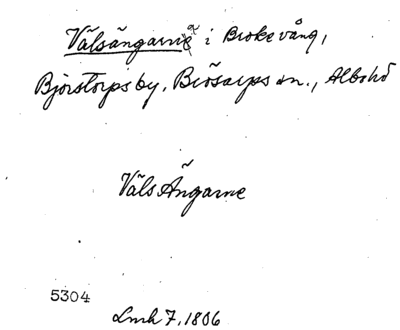 Välsängarna i Brokevång,
Bjørstorps by, Brösarps sn., Albohd
Väls Ängarne
5304
Lmh 7, 1806